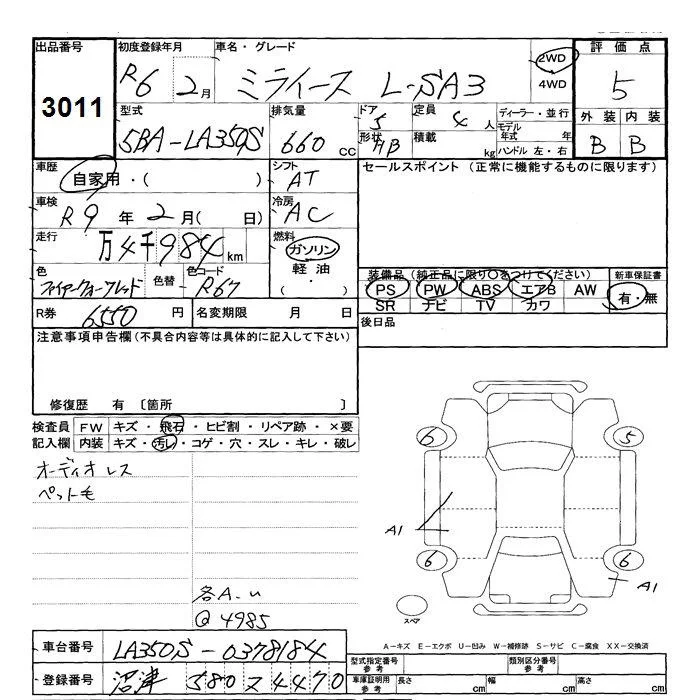 出品番号 初度登録年月 車名・グレード 評価点
3011 R6 2月 ミライース L・SA3 2WD 4WD 5
型式 排気量 ドア 定員 ディーラー・並行 外装 内装
5BA-LA350S 660cc 5 4人 モデル年式 年 B B
形状 HB 積載 kg ハンドル 左・右
車歴 シフト セールスポイント (正常に機能するものに限ります)
自家用・( ) AT
車検 冷房
R9年2月( 日) AC
走行 燃料
万4千984km ガソリン
色 色替 色コード 軽油 装備品 (純正品に限り○をつけてください) 新車保証書
ファイアークォーツレッド R67 ( ・ ) PS PW ABS エアB AW 有・無
SR ナビ TV カワ
R券 6550円 名変期限 月 日 後日品
注意事項申告欄(不具合内容等は具体的に記入して下さい)
修復歴 有 〔箇所 〕
検査員 FW キズ・飛石・ヒビ割・リペア跡・×要
記入欄 内装 キズ・汚レ・コゲ・穴・スレ・キレ・破レ
オーディオレス
ペット毛
6 5
A1
6 6
A1
各A.u
@4985
スペア
A-キズ E-エクボ U-凹み W-補修跡 S-サビ C-腐食 XX-交換済
車台番号 LA350S-0378184 型式指定番号 参考 類別区分番号 参考
登録番号 沼津 580 ス 4470 車庫証明用 参考 長さ cm 幅 cm 高さ cm